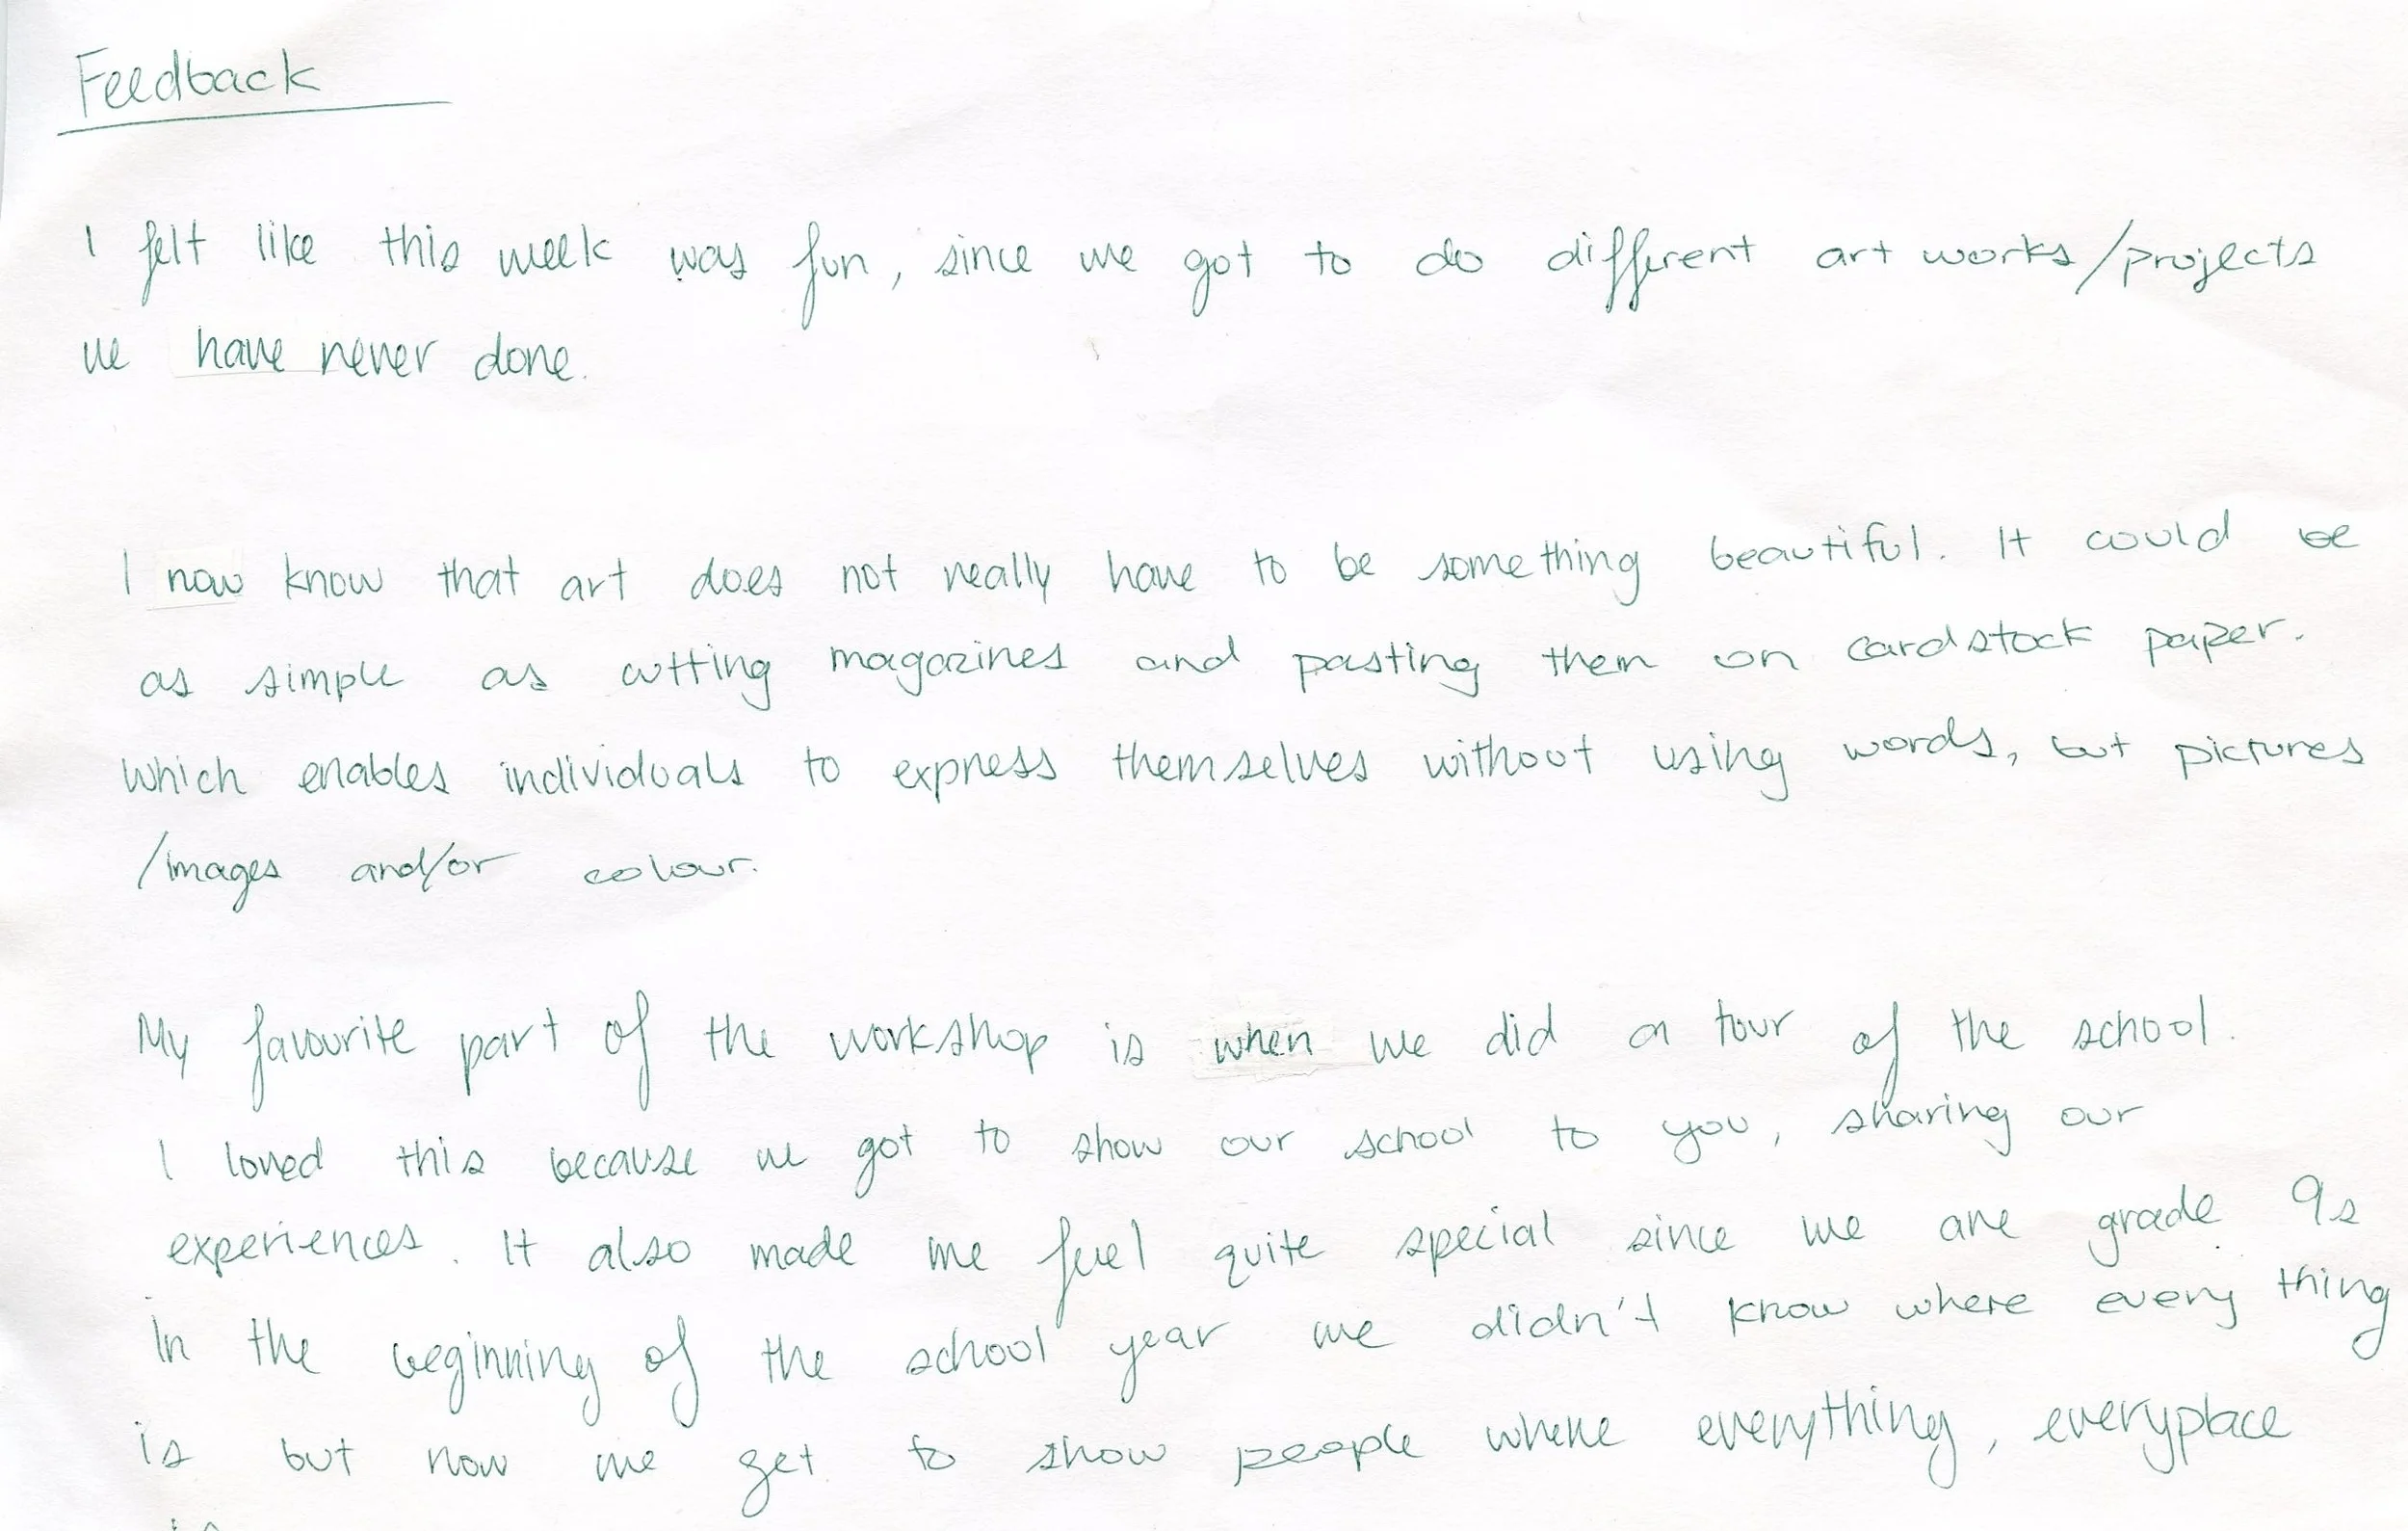 Feedback
I felt like this week was fun, since we got to do different art works/projects
we have never done.
I now know that art does not really have to be something beautiful. It could be
as simple as cutting magazines and pasting them on cardstock paper.
which enables individuals to express themselves without using words, but pictures
/images and/or colour.
My favourite part of the workshop is when we did a tour of the school.
I loved this because we got to show our school to you, sharing our
experiences. It also made me feel quite special since we are grade 9s
In the beginning of the school year we didn't know where every thing
is but now we get to show people where everything, everyplace